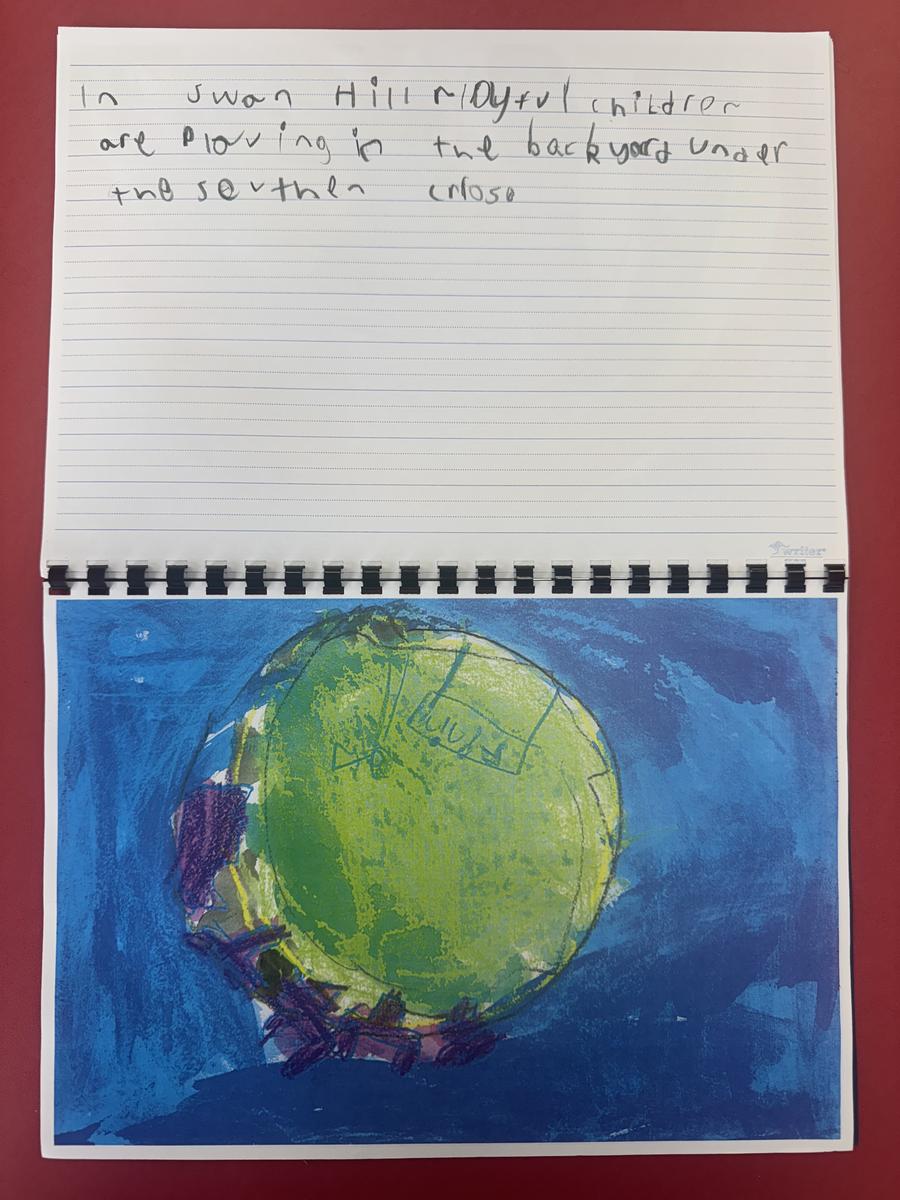 In swan Hill PlDyful children
are Plaving in the backyard under
the seuthen crose
writer